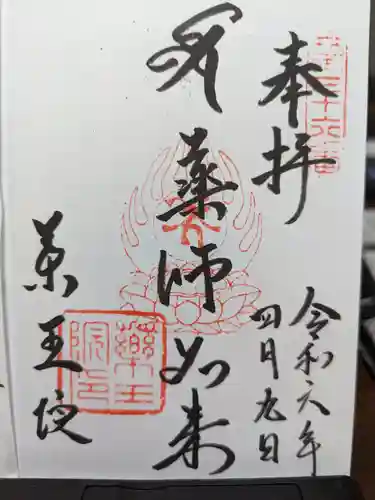 奉拝
第三十六番
令和六年
四月九日
薬師如来
薬王院
薬王院印